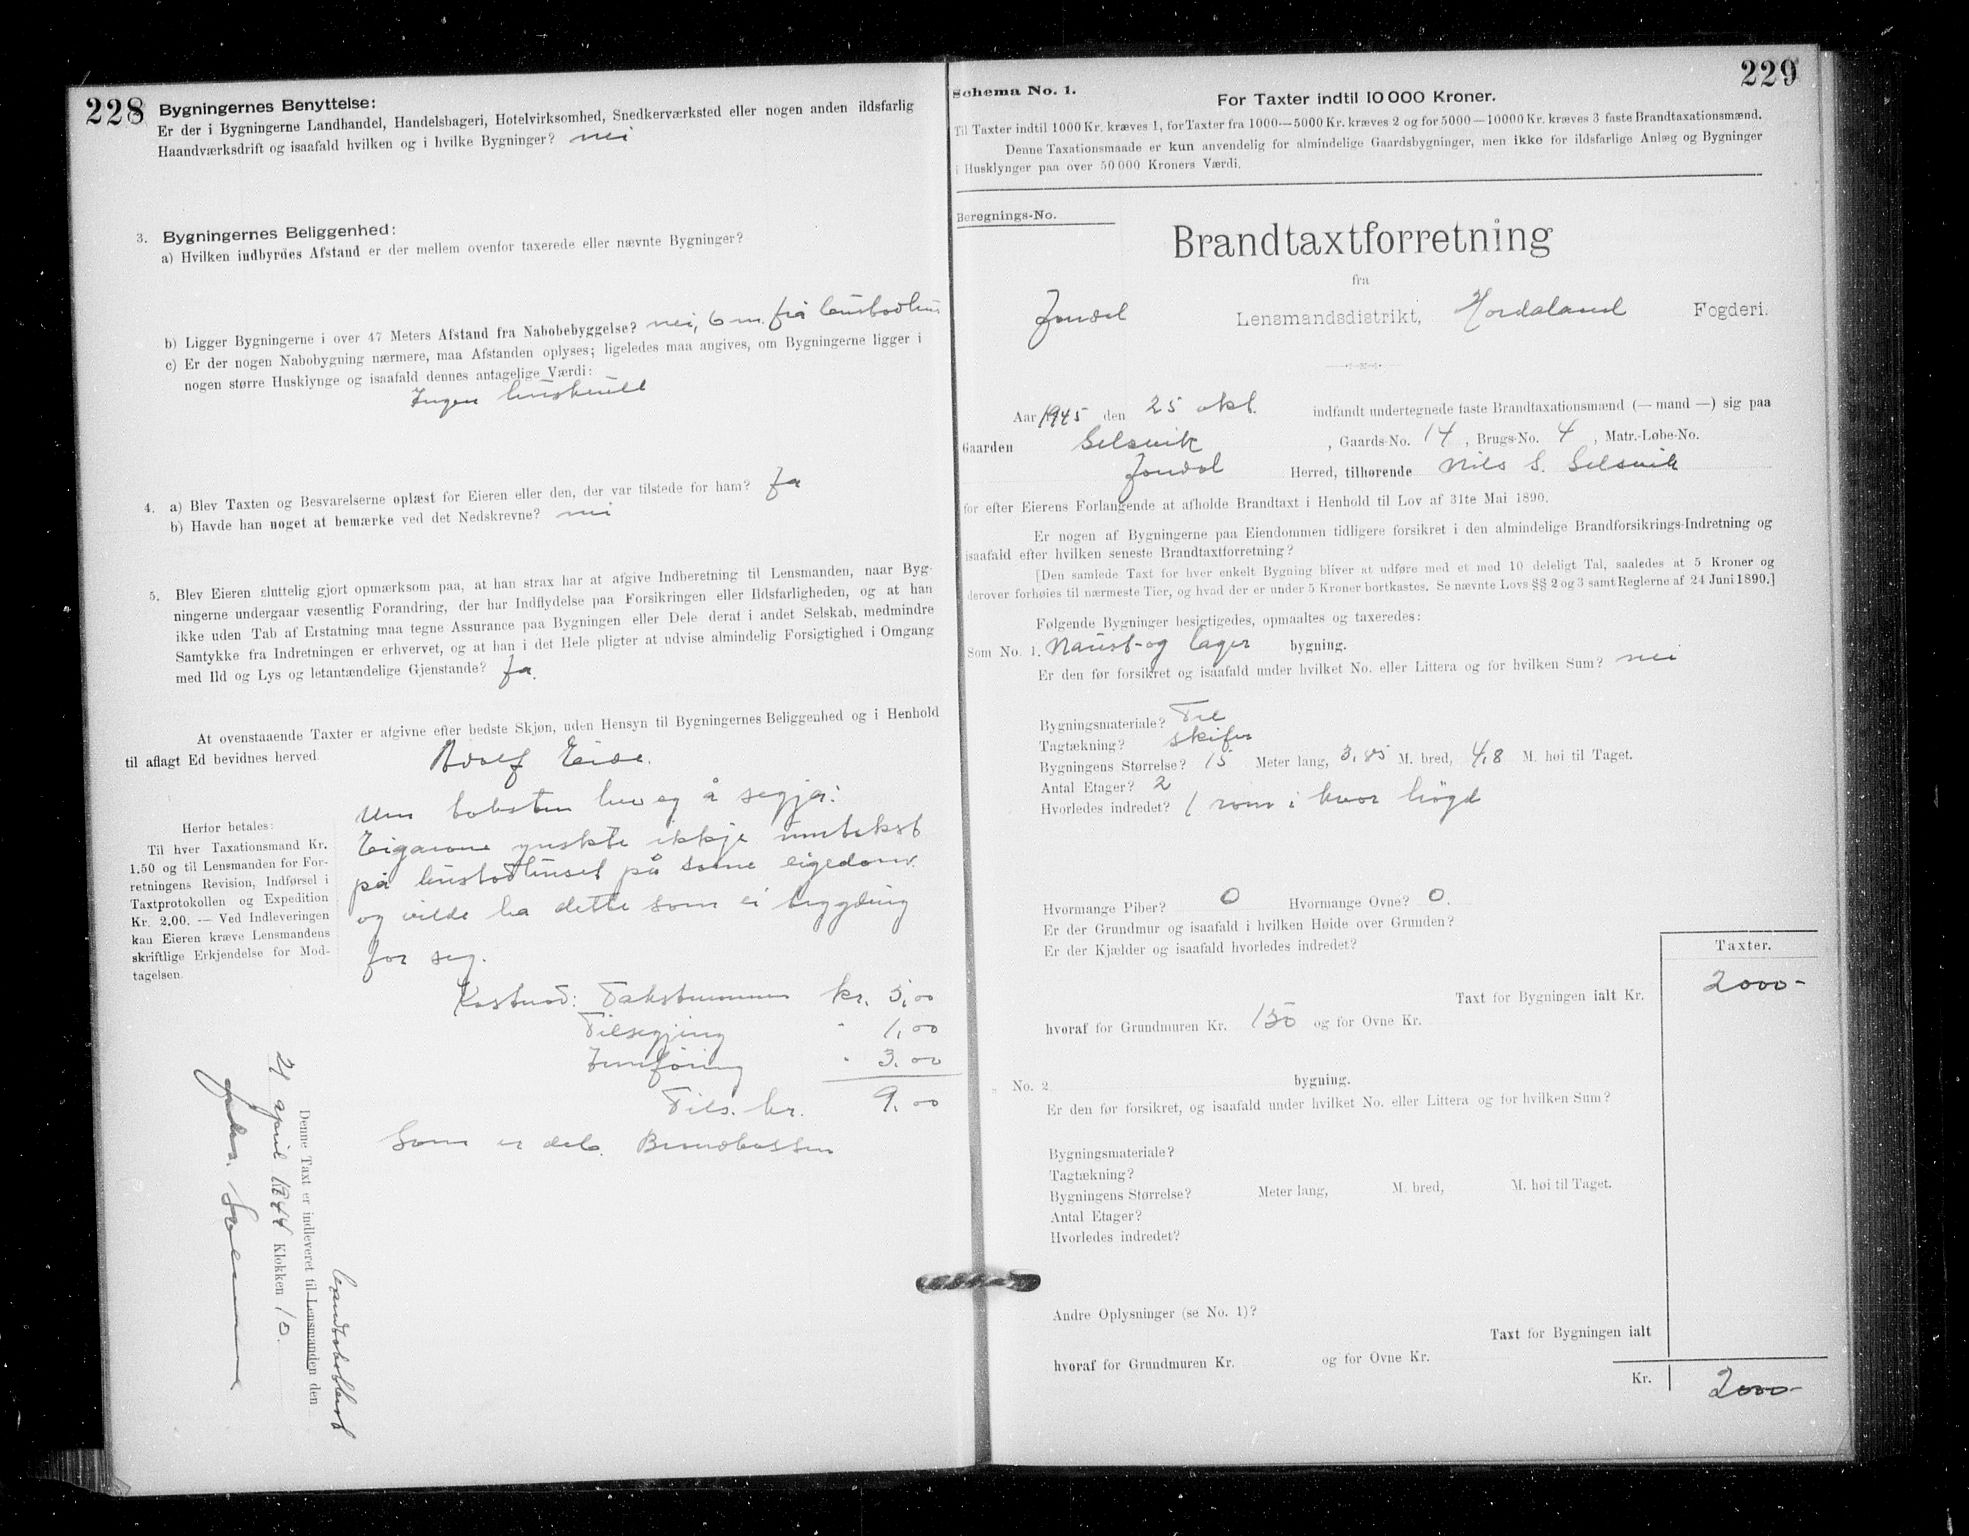 228
Bygningernes Benyttelse:
Er der i Bygningerne Landhandel, Handelsbageri, Hotelvirksomhed, Snedkerværksted eller nogen anden ildsfarlig
Haandværksdrift og isaafald hvilken og i hvilke Bygninger? nei
3. Bygningernes Beliggenhed:
a) Hvilken indbyrdes Afstand er der mellem ovenfor taxerede eller nævnte Bygninger?
b) Ligger Bygningerne i over 47 Meters Afstand fra Nabobebyggelse? nei, 6 m. frå
c) Er der nogen Nabobygning nærmere, maa Afstanden oplyses; ligeledes maa angives, om Bygningerne ligger i
nogen større Husklynge og isaafald dennes antagelige Værdi:
Ingen
4. a) Blev Taxten og Besvarelserne oplæst for Eieren eller den, der var tilstede for ham? Ja
b) Havde han noget at bemærke ved det Nedskrevne? nei
5. Blev Eieren sluttelig gjort opmærksom paa, at han strax har at afgive Indberetning til Lensmanden, naar Byg-
ningerne undergaar væsentlig Forandring, der har Indflydelse paa Forsikringen eller Ildsfarligheden, og at han
ikke uden Tab af Erstatning maa tegne Assurance paa Bygningen eller Dele deraf i andet Selskab, medmindre
Samtykke fra Indretningen er erhvervet, og at han i det Hele pligter at udvise almindelig Forsigtighed i Omgang
med Ild og Lys og letantændelige Gjenstande? Ja.
At ovenstaaende Taxter er afgivne efter bedste Skjøn, uden Hensyn til Bygningernes Beliggenhed og i Henhold
til aflagt Ed bevidnes herved.
Adolf Eide.
Um taksten hev eg å segja:
Eigaren ynskte ikkje umtakst
på på same eigedom.
og vilde ha dette som ei bygding
for seg.
Kostnad: Takstnemnda kr. 5,00
Tilsegjing " 1,00
Innføring " 3.00
Tils. kr. 9.00
Som er deb. Brandkassen
Herfor betales:
Til hver Taxationsmand Kr.
1.50 og til Lensmanden for For-
retningens Revision, Indførsel i
Taxtprotokollen og Expedition
Kr. 2.00. — Ved Indleveringen
kan Eieren kræve Lensmandens
skriftlige Erkjendelse for Mod-
tagelsen.
Denne Taxt er indleveret til Lensmanden den
21 april 1944 Klokken 10.
229
Schema No. 1.
For Taxter indtil 10 000 Kroner.
Til Taxter indtil 1000 Kr. kræves 1, for Taxter fra 1000—5000 Kr. kræves 2 og for 5000—10000 Kr. kræves 3 faste Brandtaxationsmænd.
Denne Taxationsmaade er kun anvendelig for almindelige Gaardsbygninger, men ikke for ildsfarlige Anlæg og Bygninger
i Husklynger paa over 50 000 Kroners Værdi.
Beregnings-No.
Brandtaxtforretning
fra
Jondal Lensmandsdistrikt, Hordaland Fogderi.
Aar 1945 den 25 okt. indfandt undertegnede faste Brandtaxationsmænd (— mand —) sig paa
Gaarden Selsvik, Gaards-No. 14, Brugs-No. 4, Matr.-Løbe-No.
Jondal Herred, tilhørende Nils S. Selsvik
for efter Eierens Forlangende at afholde Brandtaxt i Henhold til Lov af 31te Mai 1890.
Er nogen af Bygningerne paa Eiendommen tidligere forsikret i den almindelige Brandforsikrings-Indretning og
isaafald efter hvilken seneste Brandtaxtforretning?
[Den samlede Taxt for hver enkelt Bygning bliver at udføre med et med 10 deleligt Tal, saaledes at 5 Kroner og
derover forhøies til nærmeste Tier, og hvad der er under 5 Kroner bortkastes. Se nævnte Lovs §§ 2 og 3 samt Reglerne af 24 Juni 1890.]
Følgende Bygninger besigtigedes, opmaaltes og taxeredes:
Som No. 1. Naust-og lager bygning.
Er den før forsikret og isaafald under hvilket No. eller Littera og for hvilken Sum? nei
Bygningsmateriale? Tre
Tagtækning? skifer
Bygningens Størrelse? 15 Meter lang, 3,85 M. bred, 4,8 M. høi til Taget.
Antal Etager? 2
Hvorledes indredet? 1 rom i kvar högd
Hvormange Piber? 0 Hvormange Ovne? 0.
Er der Grundmur og isaafald i hvilken Høide over Grunden?
Er der Kjælder og isaafald hvorledes indredet?
Taxter.
Taxt for Bygningen ialt Kr. 2000-
hvoraf for Grundmuren Kr. 150 og for Ovne Kr.
" No. 2. bygning.
Er den før forsikret, og isaafald under hvilket No. eller Littera og for hvilken Sum?
Bygningsmateriale?
Tagtækning?
Bygningens Størrelse? Meter lang, M. bred, M. høi til Taget.
Antal Etager?
Hvorledes indredet?
Andre Oplysninger (se No. 1)?
Taxt for Bygningen ialt
hvoraf for Grundmuren Kr. og for Ovne Kr.
Kr. 2000-